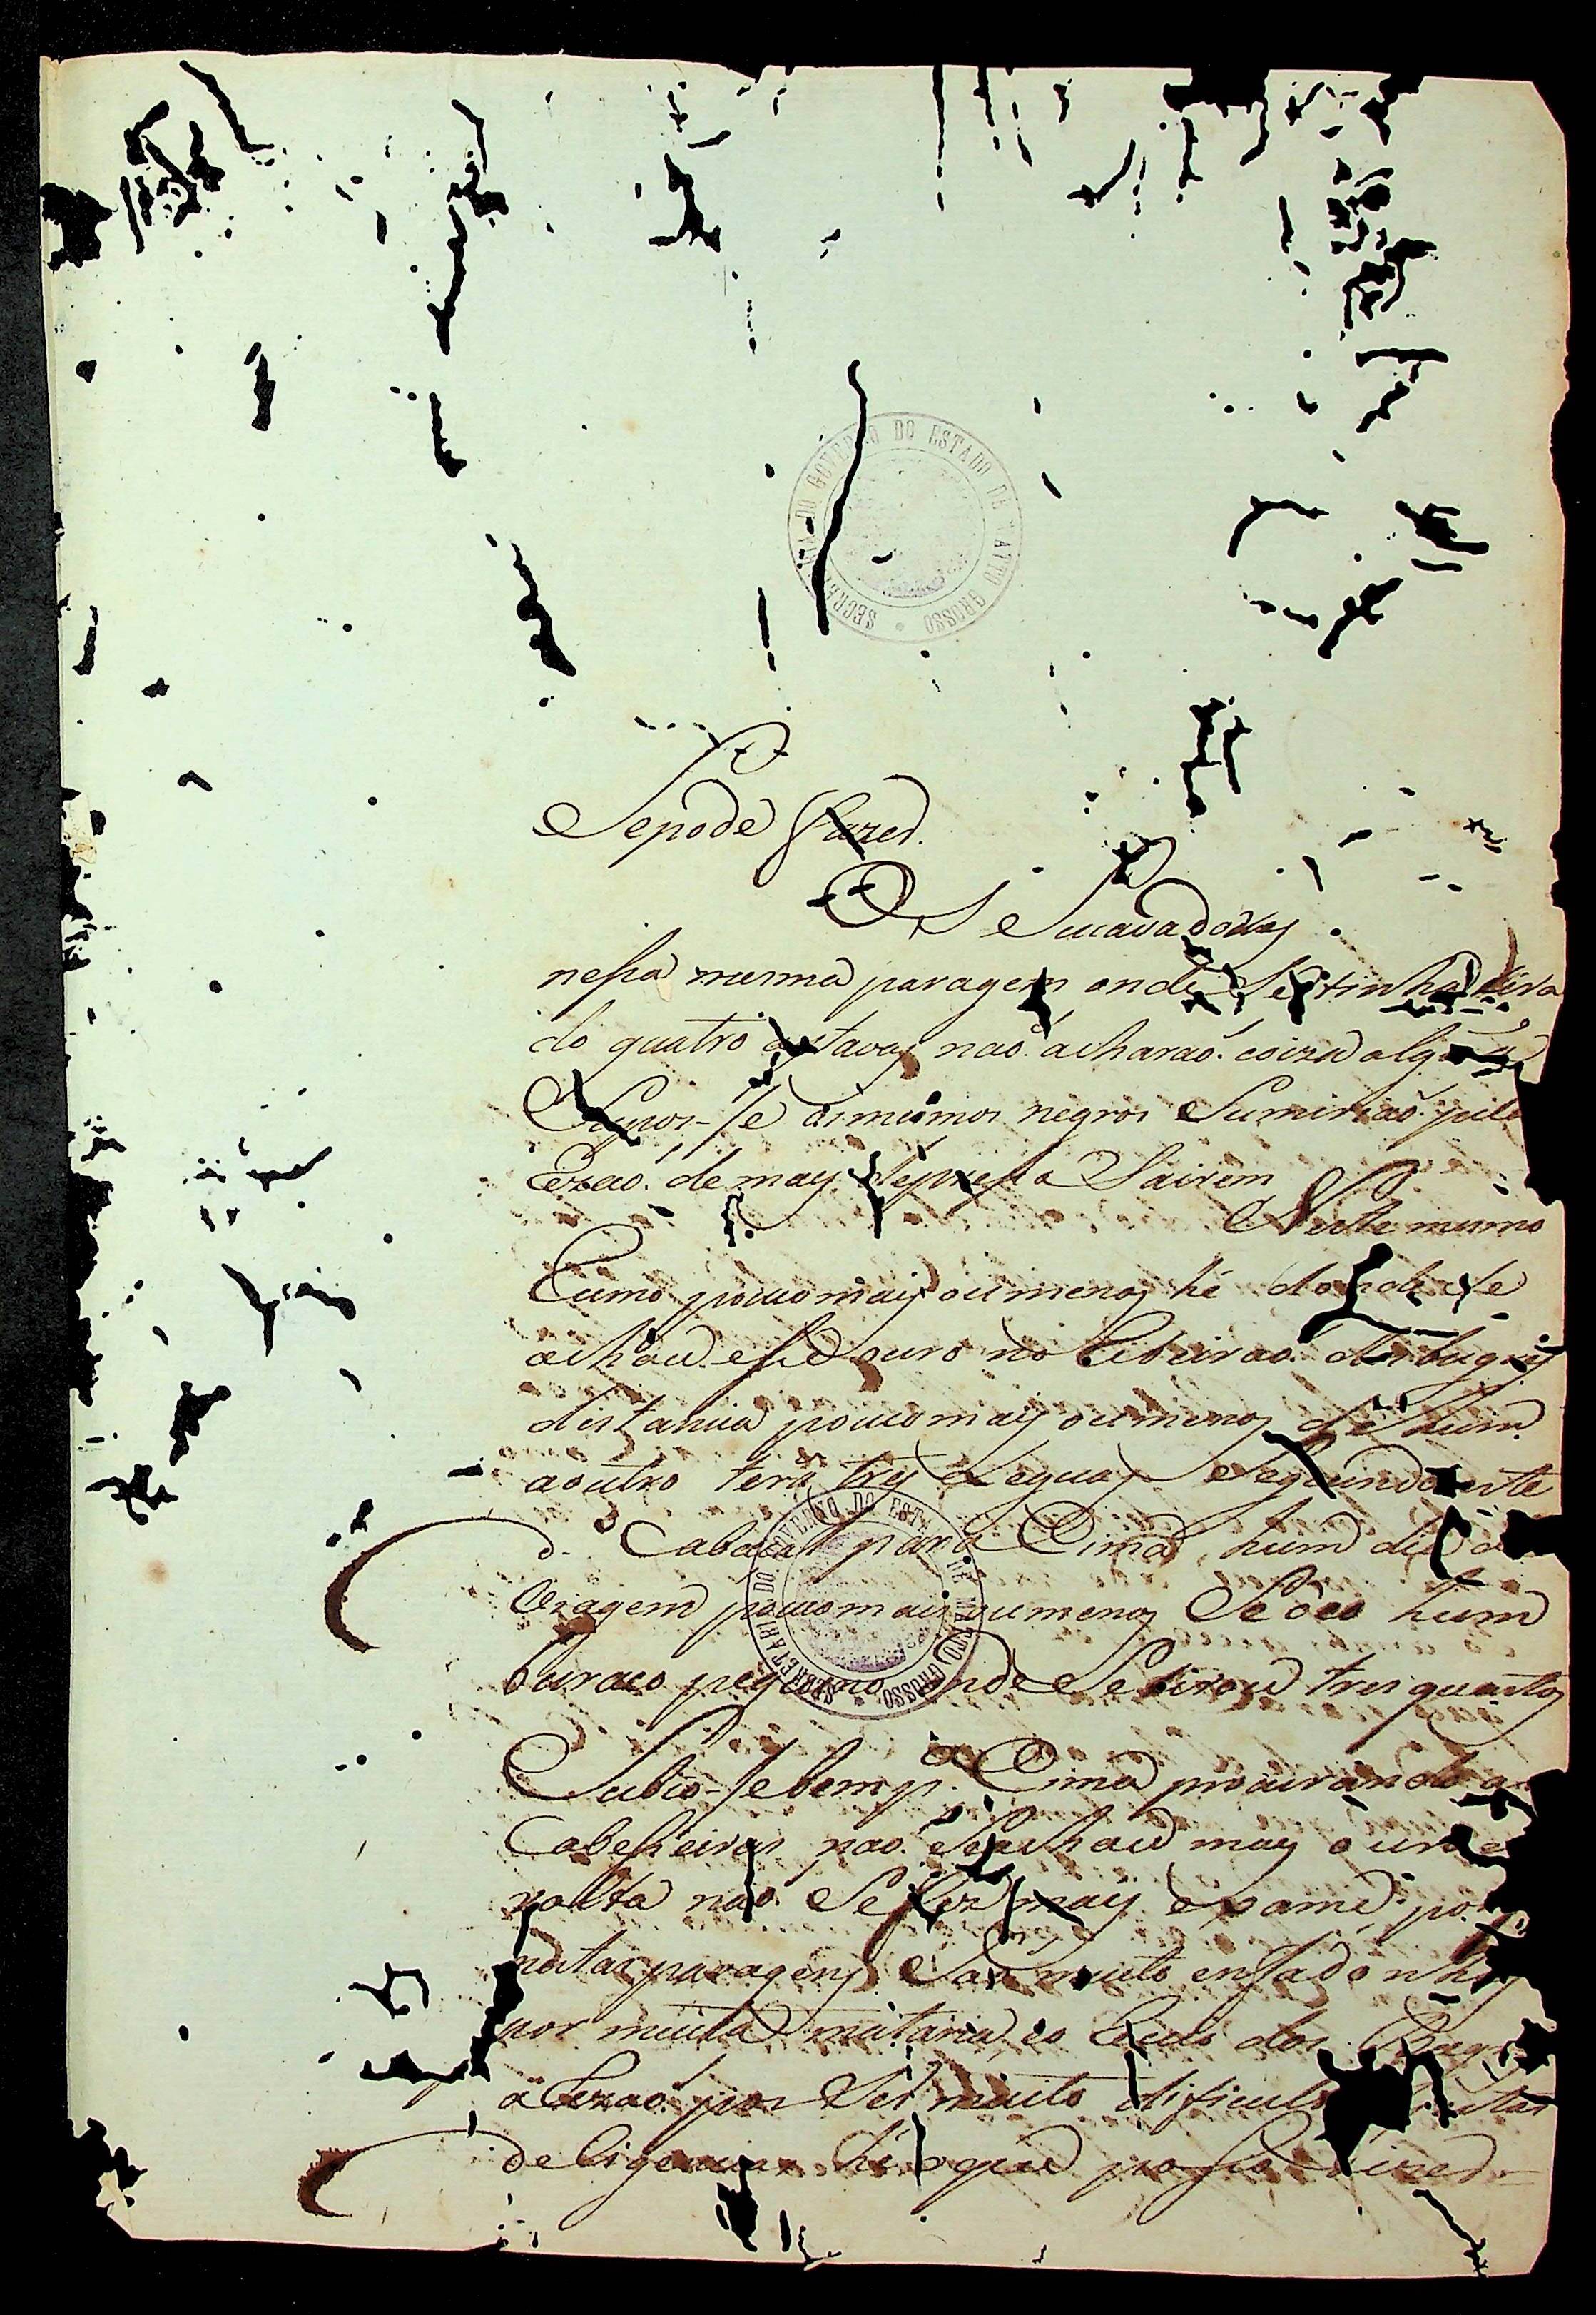 SECRETARIA DO GOVERNO DO ESTADO DE MATTO GROSSO
Sepode fazer.
Os Socavadores
nessa mesma paragem onde Setinha tira
do quatro oitavas naõ. acharaõ. coiza alguã
Supos-se os mesmos negros Sumiriaõ. pela
Rezaõ. de mais depressa Sairem
Neste mesmo
Rumo pouco mais ou menos hé donde Se
achou esse ouro no Ribeiraõ. dos bugres
distancia pouco mais ou menos de hum
aoutro terá tres Leguas Seguindo este
d.º Cabaçal para Sima, hum dia de
Viagem pouco mais ou menos Se deo hum
buraco pequeno onde Setirou tres quartos
Subio-se bem p.ª Sima procurando as
Cabesseiras naõ. Se achou mais ouro e
volta naõ. Se fez mais exame. por
estas paragens Saõ muito enfadonhas
por muita mataria, eo Rio dos Bagres
a Rezaõ. por Ser muito dificult
deligencia hé oque posso dizer
SECRETARIA DO GOVERNO DO ESTADO DE MATTO GROSSO